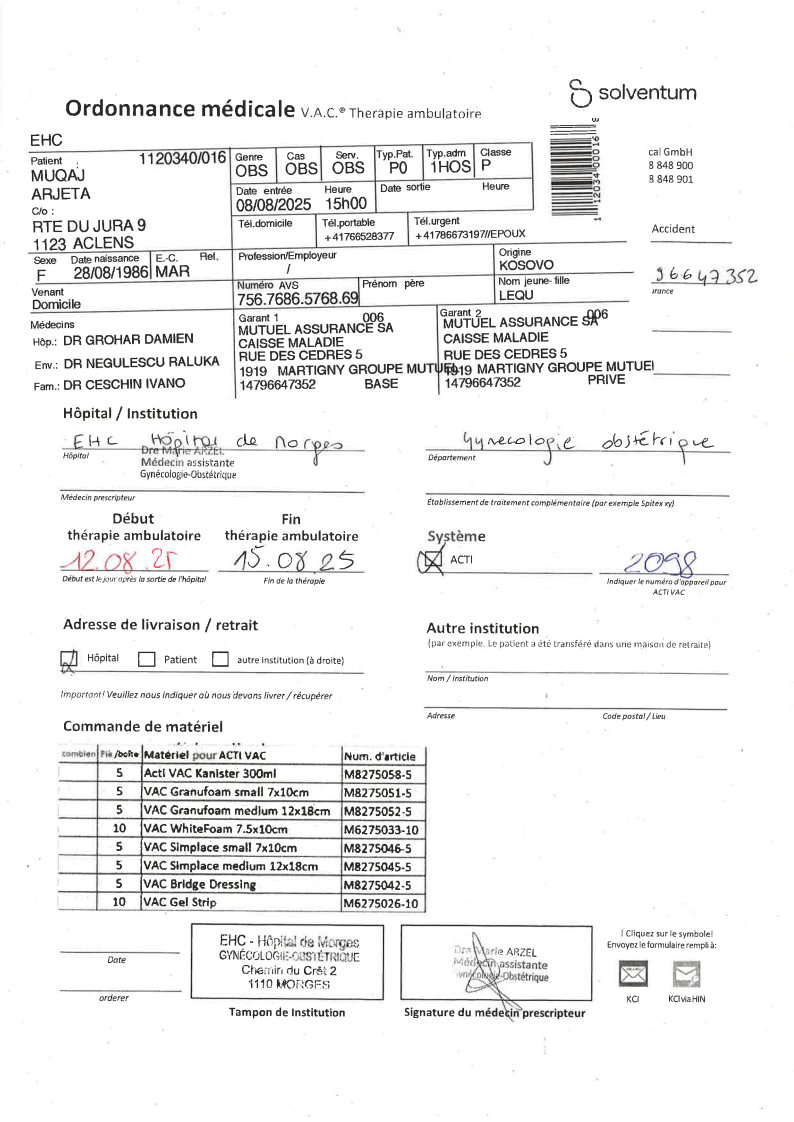 solventum
Ordonnance médicale V.A.C.® Therapie ambulatoire
EHC
Patient : 1120340/016
MUQAJ
ARJETA
C/o :
RTE DU JURA 9
1123 ACLENS
Genre OBS Cas OBS Serv. OBS Typ.Pat. P0 Typ.adm 1HOS Classe P
Date entrée 08/08/2025 Heure 15h00 Date sortie Heure
Tél.domicile Tél.portable +41766528377 Tél.urgent +41786673197//EPOUX
cal GmbH
8 848 900
8 848 901
1120340000163
Accident
Sexe F Date naissance 28/08/1986 E.-C. MAR Rel.
Profession/Employeur /
Origine KOSOVO
Venant Domicile
Numéro AVS 756.7686.5768.69
Prénom père
Nom jeune-fille LEQU
96647352
urance
Médecins
Hôp.: DR GROHAR DAMIEN
Env.: DR NEGULESCU RALUKA
Fam.: DR CESCHIN IVANO
Garant 1 006
MUTUEL ASSURANCE SA
CAISSE MALADIE
RUE DES CEDRES 5
1919 MARTIGNY GROUPE MUTUEL
14796647352 BASE
Garant 2 006
MUTUEL ASSURANCE SA
CAISSE MALADIE
RUE DES CEDRES 5
1919 MARTIGNY GROUPE MUTUEL
14796647352 PRIVE
Hôpital / Institution
EHC Hôpital de Morges
Hôpital
Dre Marie ARZEL
Médecin assistante
Gynécologie-Obstétrique
Médecin prescripteur
Gynecologie obstétrique
Département
Établissement de traitement complémentaire (par exemple Spitex xy)
Début
thérapie ambulatoire
12.08.25
Début est le jour après la sortie de l'hôpital
Fin
thérapie ambulatoire
15.08.25
Fin de la thérapie
Système
ACTI
2098
Indiquer le numéro d'appareil pour
ACTI VAC
Adresse de livraison / retrait
Hôpital Patient autre institution (à droite)
Important! Veuillez nous indiquer où nous devons livrer / récupérer
Autre institution
(par exemple. Le patient a été transféré dans une maison de retraite)
Nom / Institution
Adresse Code postal / Lieu
Commande de matériel
combien Piè/boîte Matériel pour ACTI VAC Num. d'article
5 Acti VAC Kanister 300ml M8275058-5
5 VAC Granufoam small 7x10cm M8275051-5
5 VAC Granufoam medium 12x18cm M8275052-5
10 VAC WhiteFoam 7.5x10cm M6275033-10
5 VAC Simplace small 7x10cm M8275046-5
5 VAC Simplace medium 12x18cm M8275045-5
5 VAC Bridge Dressing M8275042-5
10 VAC Gel Strip M6275026-10
Date
orderer
EHC - Hôpital de Morges
GYNÉCOLOGIE-OBSTÉTRIQUE
Chemin du Crêt 2
1110 MORGES
Tampon de Institution
Dre Marie ARZEL
Médecin assistante
Gynécologie-Obstétrique
Signature du médecin prescripteur
! Cliquez sur le symbole!
Envoyez le formulaire rempli à:
KCI KCI via HIN